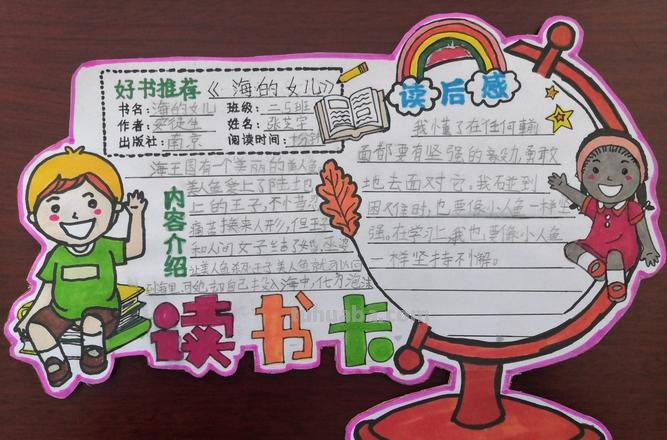 好书推荐《海的女儿》
书名:海的女儿 班级:二5班
作者:安徒生 姓名:张芝宇
出版社:南京 阅读时间:
内容介绍
海王国有一个美丽的美人鱼
美人鱼爱上了陆地
上的王子,不惜
痛苦换来人形,但王子
和人间女子结了婚
美人鱼
自己投入海中,化为泡沫
读后感
我懂了在任何
面都要有坚强的 勇敢
地去面对它。我碰到
困难时,也要像小人鱼一样坚
强。在学习上我也要像小人鱼
一样坚持不懈。
读书卡